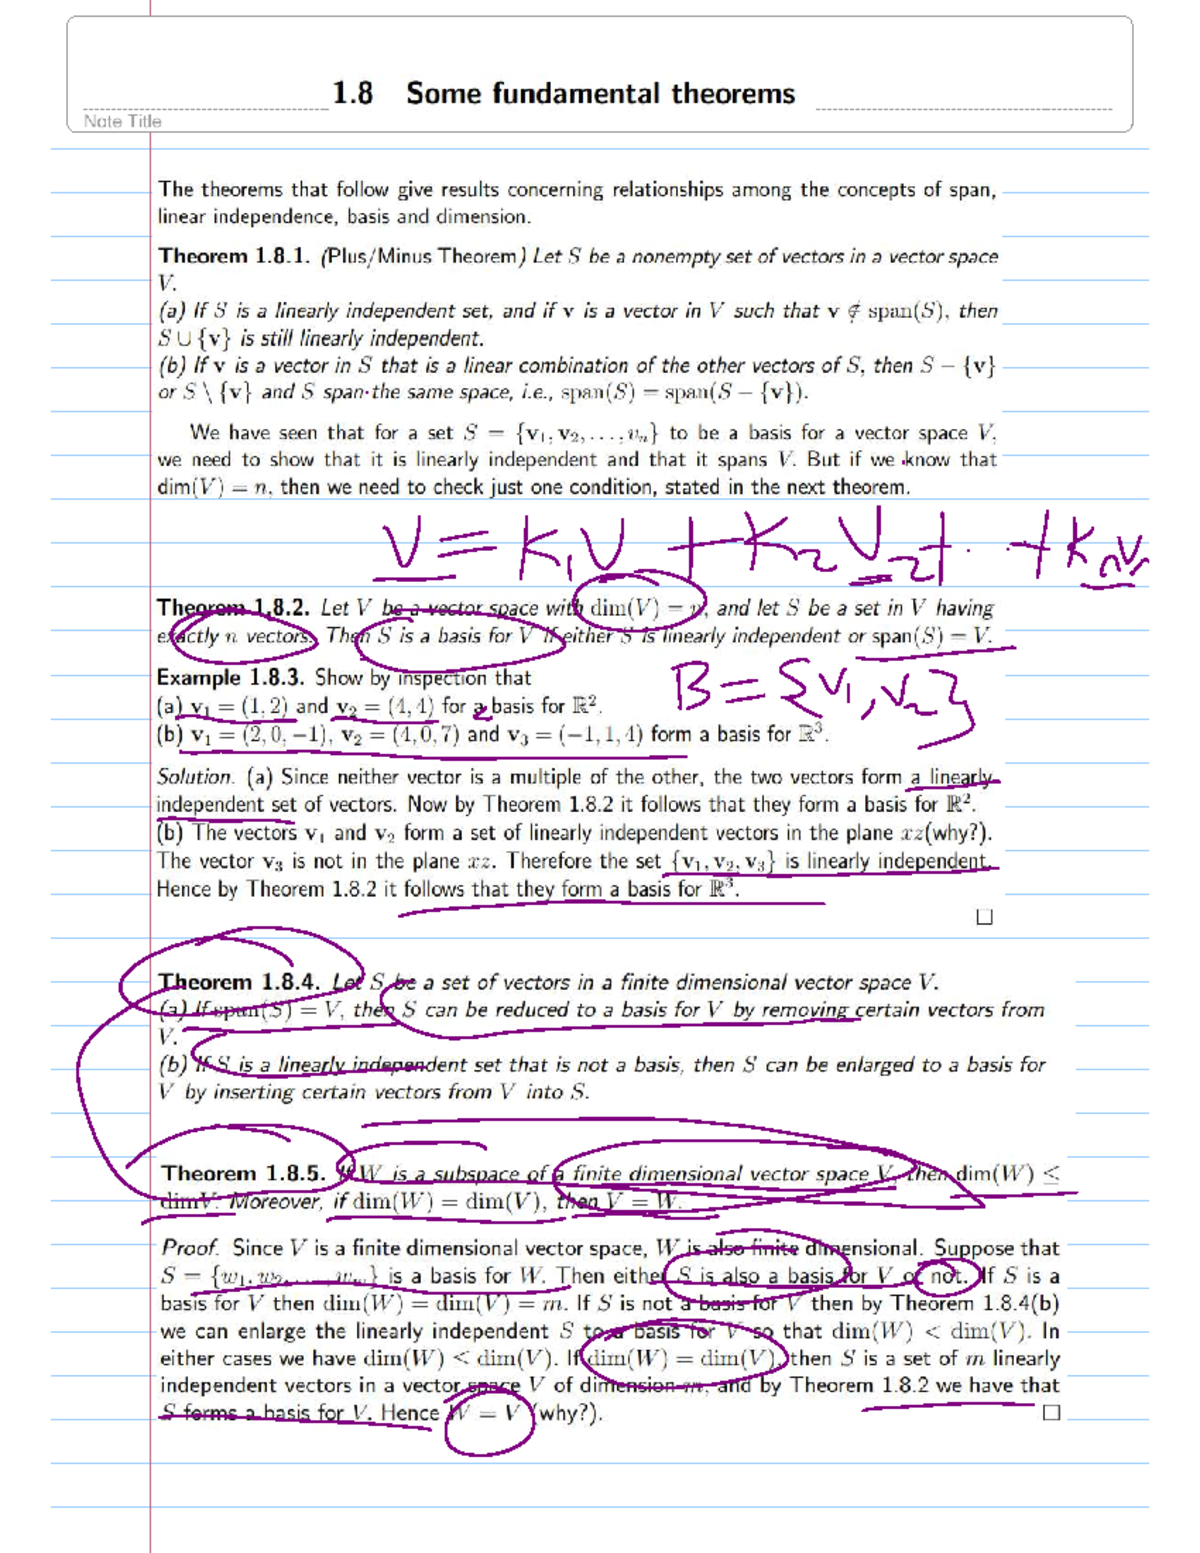 1.8 Some fundamental theorems
Note Title
The theorems that follow give results concerning relationships among the concepts of span,
linear independence, basis and dimension.
Theorem 1.8.1. (Plus/Minus Theorem) Let S be a nonempty set of vectors in a vector space
V.
(a) If S is a linearly independent set, and if v is a vector in V such that v ∉ span(S), then
S ∪ {v} is still linearly independent.
(b) If v is a vector in S that is a linear combination of the other vectors of S, then S − {v}
or S \ {v} and S span the same space, i.e., span(S) = span(S − {v}).
We have seen that for a set S = {v₁, v₂, . . . , vₙ} to be a basis for a vector space V,
we need to show that it is linearly independent and that it spans V. But if we know that
dim(V) = n, then we need to check just one condition, stated in the next theorem.
V = K₁V + K₂V₂ + . . + KₙVₙ
Theorem 1.8.2. Let V be a vector space with dim(V) = n, and let S be a set in V having
exactly n vectors. Then S is a basis for V if either S is linearly independent or span(S) = V.
Example 1.8.3. Show by inspection that
B = {V₁, V₂}
(a) v₁ = (1, 2) and v₂ = (4, 4) for a basis for ℝ².
2
(b) v₁ = (2, 0, −1), v₂ = (4, 0, 7) and v₃ = (−1, 1, 4) form a basis for ℝ³.
Solution. (a) Since neither vector is a multiple of the other, the two vectors form a linearly
independent set of vectors. Now by Theorem 1.8.2 it follows that they form a basis for ℝ².
(b) The vectors v₁ and v₂ form a set of linearly independent vectors in the plane xz(why?).
The vector v₃ is not in the plane xz. Therefore the set {v₁, v₂, v₃} is linearly independent.
Hence by Theorem 1.8.2 it follows that they form a basis for ℝ³.
□
Theorem 1.8.4. Let S be a set of vectors in a finite dimensional vector space V.
(a) If span(S) = V, then S can be reduced to a basis for V by removing certain vectors from
V.
(b) If S is a linearly independent set that is not a basis, then S can be enlarged to a basis for
V by inserting certain vectors from V into S.
Theorem 1.8.5. If W is a subspace of a finite dimensional vector space V, then dim(W) ≤
dimV. Moreover, if dim(W) = dim(V), then V = W.
Proof. Since V is a finite dimensional vector space, W is also finite dimensional. Suppose that
S = {w₁, w₂, . . . , wₘ} is a basis for W. Then either S is also a basis for V or not. If S is a
basis for V then dim(W) = dim(V) = m. If S is not a basis for V then by Theorem 1.8.4(b)
we can enlarge the linearly independent S to a basis for V so that dim(W) < dim(V). In
either cases we have dim(W) < dim(V). If dim(W) = dim(V), then S is a set of m linearly
independent vectors in a vector space V of dimension m, and by Theorem 1.8.2 we have that
S forms a basis for V. Hence W = V (why?). □